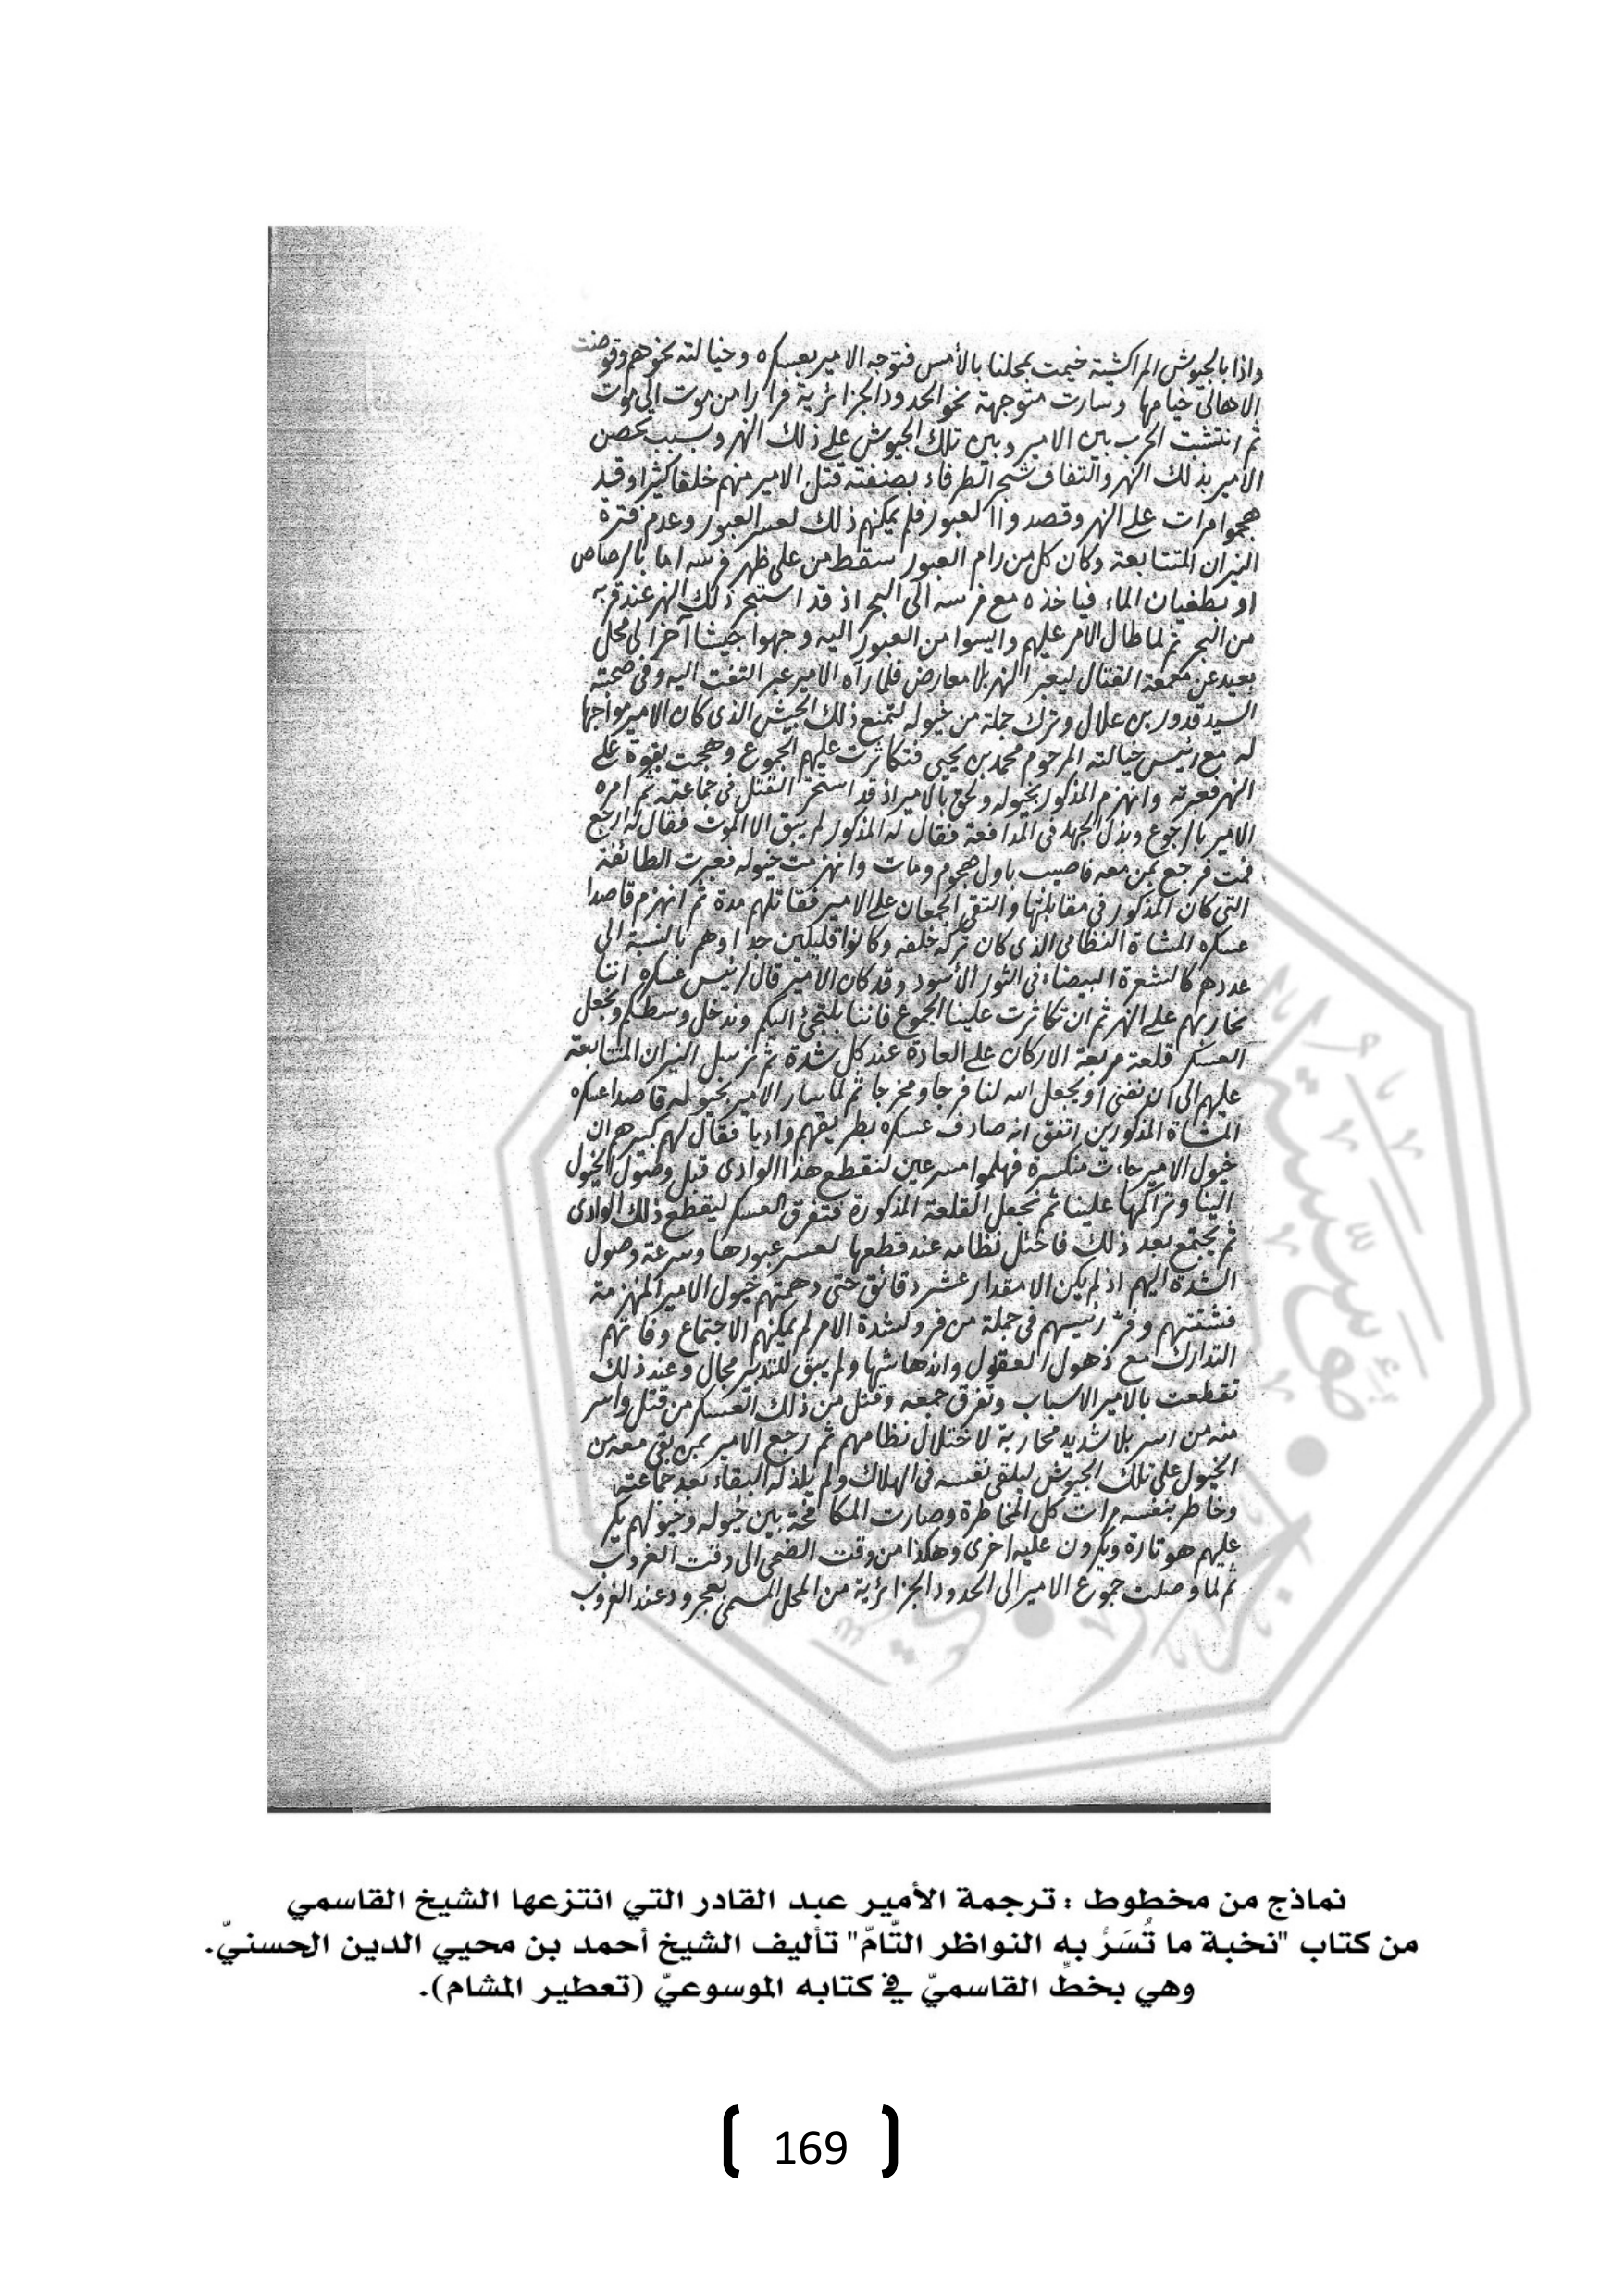 واذا بالجيوش المراكشية خيمت بمحلنا بالأمس فتوجه الامير بعسكره وخيالته نحوهم وقوضت
الاهالى خيامها وسارت متوجهة نحو الحدود الجزائرية فرارا من موت الى موت
ثم انتشبت الحرب بين الامير وبين تلك الجيوش على ذلك النهر وبسبب تحصن
الامير بذلك النهر والتفاف شجر الطرفاء بضفته قتل الامير منهم خلقا كثيرا وقد
هجموا مرات على النهر وقصدوا العبور فلم يمكنهم ذلك لعسر العبور وعدم فترة
النيران المتتابعة وكان كل من رام العبور سقط من على ظهر فرسه اما بالرصاص
او بطغيان الماء فياخذه مع فرسه الى البحر اذ قد استبحر ذلك النهر عند قربه
من البحر ثم لما طال الامر عليهم وايسوا من العبور اليه وجهوا جيشا آخر الى محل
بعيد عن معمعة القتال ليعبر النهر بلا معارض فلما رآه الامير عبر التفت اليه وفى صحبته
السيد قدور بن علال وترك جملة من خيوله لتمنع ذلك الجيش الذى كان الامير مواجها
له مع رئيس خيالته المرحوم محمد بن يحيى فتكاثرت عليهم الجموع وهجمت بقوة على
النهر فعبرته وانهزم المذكور بخيوله ولحق بالامير اذ قد استحر القتل فى جماعته ثم امره
الامير بالرجوع وبذل الجهد فى المدافعة فقال له المذكور لم يبق الا الموت فقال له ارجع
فمت فرجع بمن معه فاصيب باول هجوم ومات وانهزمت خيوله فعبرت الطائفة
التى كان المذكور فى مقابلتها والتقى الجمعان على الامير فقاتلهم مدة ثم انهزم قاصدا
عسكره المشاة النظامى الذى كان تركه خلفه وكانوا قليلين جدا وهم بالنسبة الى
عددهم كالشعرة البيضاء فى الثور الأسود وقد كان الامير قال لرئيس عسكره اننا
نحاربهم على النهر ثم ان تكاثرت علينا الجموع فاننا نلتجئ اليكم وندخل وسطكم ونجعل
العسكر قلعة مربعة الاركان على العادة عند كل شدة ثم نرسل النيران المتتابعة
عليهم الى ان نفنى أو يجعل الله لنا فرجا ومخرجا ثم لما سار الامير بخيوله قاصدا عسكره
المشاة المذكورين اتفق انه صادف عسكره بطريقهم واديا فقال لهم كبيرهم ان
خيول الامير جاءت منكسرة فهلموا مسرعين لنقطع هذا الوادى قبل وصول الخيول
الينا وتراكمها علينا ثم نجعل القلعة المذكورة فتفرق العسكر ليقطع ذلك الوادى
ثم يجتمع بعد ذلك فاختل نظامه عند قطعها لعسر عبورها وسرعة وصول
الشدة اليهم اذ لم يكن الا مقدار عشر دقائق حتى دهمتهم خيول الامير المنهزمة
فشتتهم وفر رئيسهم فى جملة من فر ولشدة الامر لم يمكنهم الاجتماع وفاتهم
التدارك مع ذهول العقول واندهاشها ولم يبق للتدبر مجال وعند ذلك
تقطعت بالامير الاسباب وتفرق جمعه وقتل من ذلك العسكر من قتل واسر
منه من اسر بلا شديد محاربة لاختلال نظامهم ثم رجع الامير بمن بقى معه من
الخيول على تلك الجيوش ليلقى نفسه فى الهلاك ولم يلذ له البقاء بعد جماعته
وخاطر بنفسه مرات كل المخاطرة وصارت المكافحة بين خيوله وخيولهم يكر
عليهم هو تارة ويكرون عليه اخرى وهكذا من وقت الضحى الى وقت الغروب
ثم لما وصلت جموع الامير الى الحدود الجزائرية من المحل المسمى بعجرود عند الغروب
نماذج من مخطوط : ترجمة الأمير عبد القادر التي انتزعها الشيخ القاسمي
من كتاب "نخبة ما تُسَرُّ به النواظر التّامّ" تأليف الشيخ أحمد بن محيي الدين الحسنيّ.
وهي بخطِّ القاسميّ في كتابه الموسوعيّ (تعطير المشام).
169